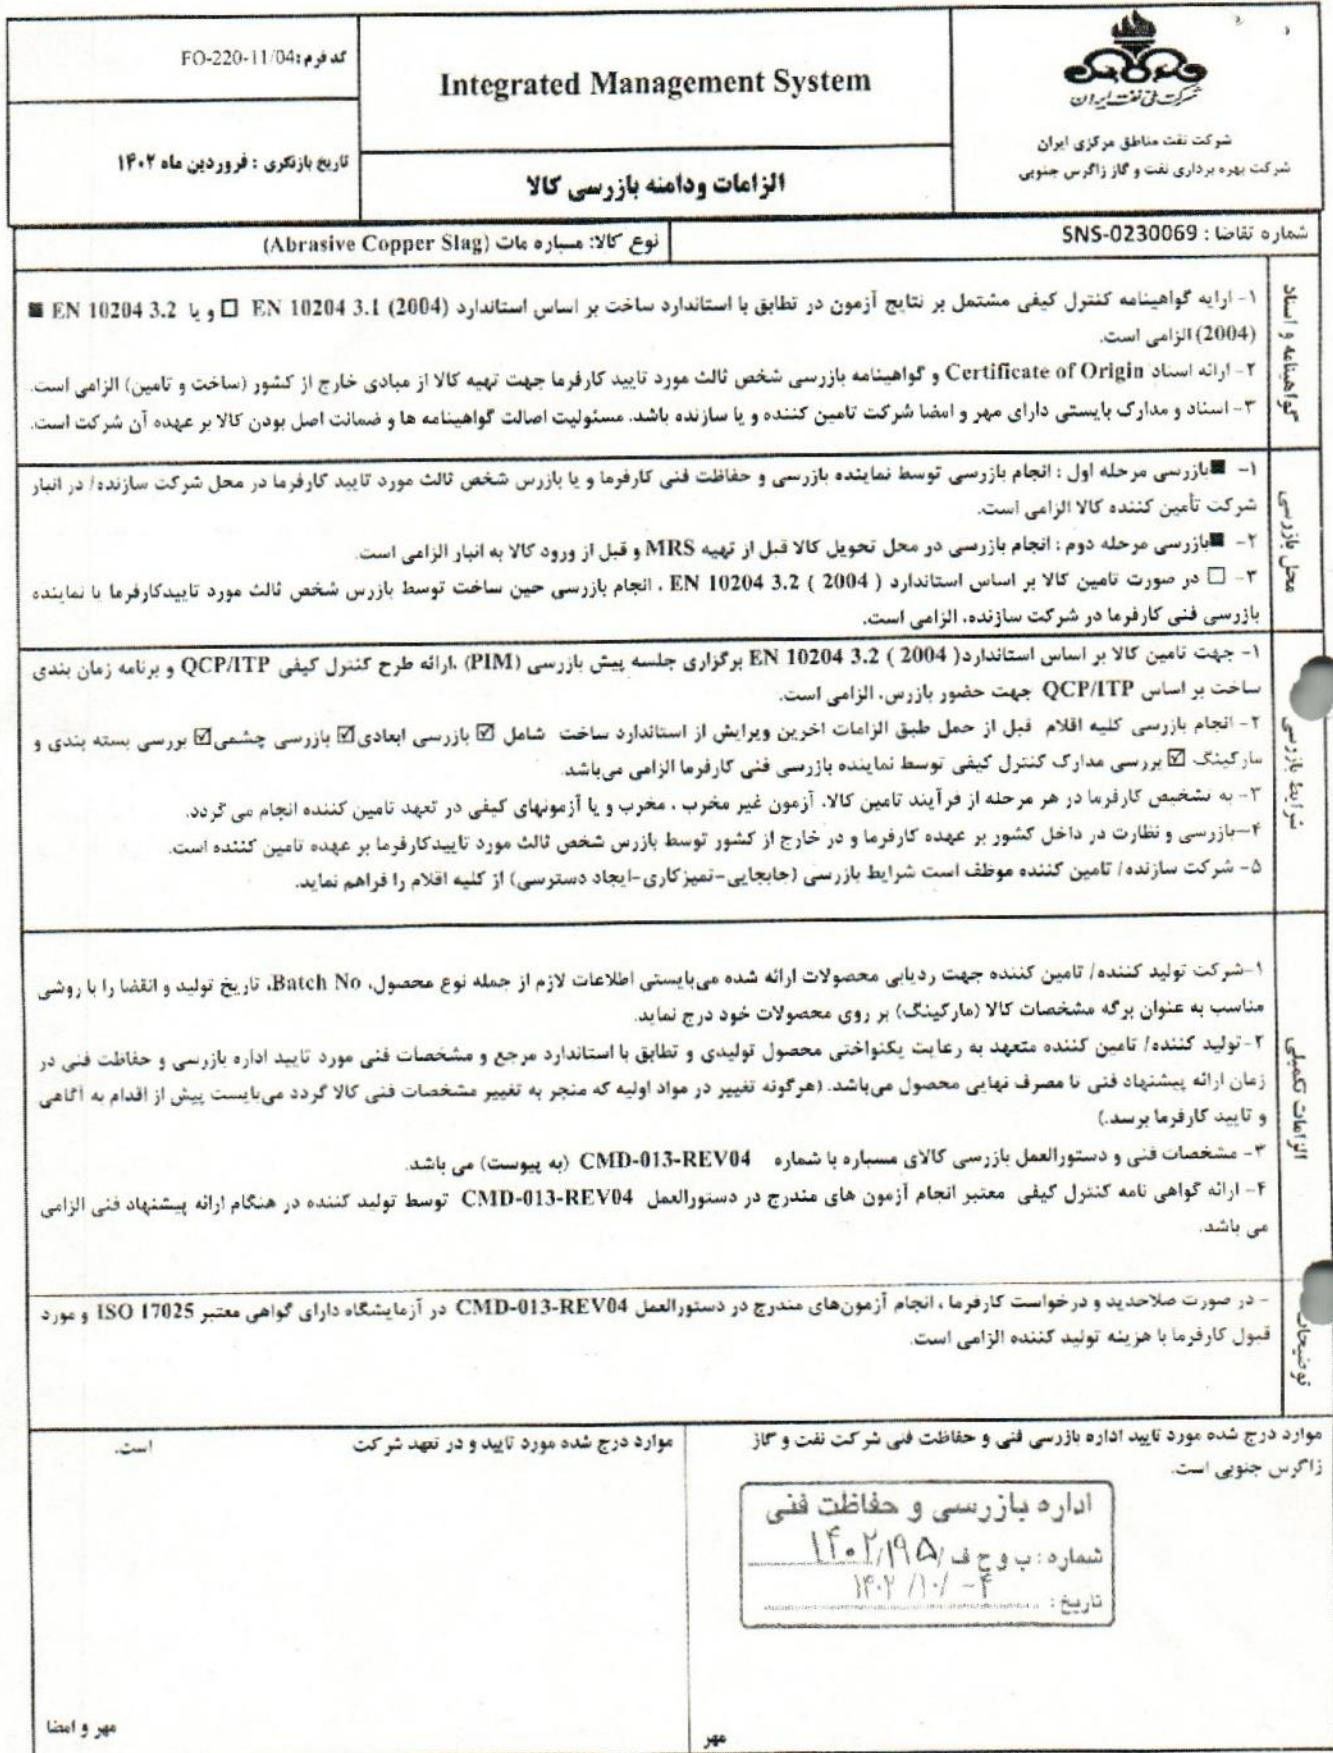 شرکت ملی نفت ایران
شرکت نفت مناطق مرکزی ایران
شرکت بهره برداری نفت و گاز زاگرس جنوبی
Integrated Management System
الزامات ودامنه بازرسی کالا
کد فرم:FO-220-11/04
تاریخ بازنگری : فروردین ماه ۱۴۰۲
شماره تقاضا : SNS-0230069
نوع کالا: مسباره مات (Abrasive Copper Slag)
گواهینامه و اسناد
۱- ارایه گواهینامه کنترل کیفی مشتمل بر نتایج آزمون در تطابق با استاندارد ساخت بر اساس استاندارد EN 10204 3.1 (2004) ☐ و یا EN 10204 3.2 ■
(2004) الزامی است.
۲- ارائه اسناد Certificate of Origin و گواهینامه بازرسی شخص ثالث مورد تایید کارفرما جهت تهیه کالا از مبادی خارج از کشور (ساخت و تامین) الزامی است.
۳- اسناد و مدارک بایستی دارای مهر و امضا شرکت تامین کننده و یا سازنده باشد. مسئولیت اصالت گواهینامه ها و ضمانت اصل بودن کالا بر عهده آن شرکت است.
محل بازرسی
۱- ■بازرسی مرحله اول : انجام بازرسی توسط نماینده بازرسی و حفاظت فنی کارفرما و یا بازرس شخص ثالث مورد تایید کارفرما در محل شرکت سازنده/ در انبار
شرکت تأمین کننده کالا الزامی است.
۲- ■بازرسی مرحله دوم : انجام بازرسی در محل تحویل کالا قبل از تهیه MRS و قبل از ورود کالا به انبار الزامی است.
۳- ☐ در صورت تامین کالا بر اساس استاندارد EN 10204 3.2 ( 2004 ) ، انجام بازرسی حین ساخت توسط بازرس شخص ثالث مورد تاییدکارفرما یا نماینده
بازرسی فنی کارفرما در شرکت سازنده، الزامی است.
شرایط بازرسی
۱- جهت تامین کالا بر اساس استاندارد EN 10204 3.2 ( 2004 ) برگزاری جلسه پیش بازرسی (PIM) ،ارائه طرح کنترل کیفی QCP/ITP و برنامه زمان بندی
ساخت بر اساس QCP/ITP جهت حضور بازرس، الزامی است.
۲- انجام بازرسی کلیه اقلام قبل از حمل طبق الزامات اخرین ویرایش از استاندارد ساخت شامل ☑ بازرسی ابعادی☑ بازرسی چشمی☑ بررسی بسته بندی و
مارکینگ ☑ بررسی مدارک کنترل کیفی توسط نماینده بازرسی فنی کارفرما الزامی می‌باشد.
۳- به تشخیص کارفرما در هر مرحله از فرآیند تامین کالا، آزمون غیر مخرب ، مخرب و یا آزمونهای کیفی در تعهد تامین کننده انجام می گردد.
۴-بازرسی و نظارت در داخل کشور بر عهده کارفرما و در خارج از کشور توسط بازرس شخص ثالث مورد تاییدکارفرما بر عهده تامین کننده است.
۵- شرکت سازنده/ تامین کننده موظف است شرایط بازرسی (جابجایی-تمیزکاری-ایجاد دسترسی) از کلیه اقلام را فراهم نماید.
الزامات تکمیلی
۱-شرکت تولید کننده/ تامین کننده جهت ردیابی محصولات ارائه شده می‌بایستی اطلاعات لازم از جمله نوع محصول، Batch No، تاریخ تولید و انقضا را با روشی
مناسب به عنوان برگه مشخصات کالا (مارکینگ) بر روی محصولات خود درج نماید.
۲-تولید کننده/ تامین کننده متعهد به رعایت یکنواختی محصول تولیدی و تطابق با استاندارد مرجع و مشخصات فنی مورد تایید اداره بازرسی و حفاظت فنی در
زمان ارائه پیشنهاد فنی تا مصرف نهایی محصول می‌باشد. (هرگونه تغییر در مواد اولیه که منجر به تغییر مشخصات فنی کالا گردد می‌بایست پیش از اقدام به آگاهی
و تایید کارفرما برسد.)
۳- مشخصات فنی و دستورالعمل بازرسی کالای مسباره با شماره CMD-013-REV04 (به پیوست) می باشد.
۴- ارائه گواهی نامه کنترل کیفی معتبر انجام آزمون های مندرج در دستورالعمل CMD-013-REV04 توسط تولید کننده در هنگام ارائه پیشنهاد فنی الزامی
می باشد.
توضیحات
- در صورت صلاحدید و درخواست کارفرما ، انجام آزمون‌های مندرج در دستورالعمل CMD-013-REV04 در آزمایشگاه دارای گواهی معتبر ISO 17025 و مورد
قبول کارفرما با هزینه تولید کننده الزامی است.
موارد درج شده مورد تایید اداره بازرسی فنی و حفاظت فنی شرکت نفت و گاز
زاگرس جنوبی است.
اداره بازرسی و حفاظت فنی
شماره : ب و ح ف /۱۴۰۲/۱۹۵
تاریخ : ۱۴۰۲/۱۰/۰۴
مهر
موارد درج شده مورد تایید و در تعهد شرکت است.
مهر و امضا